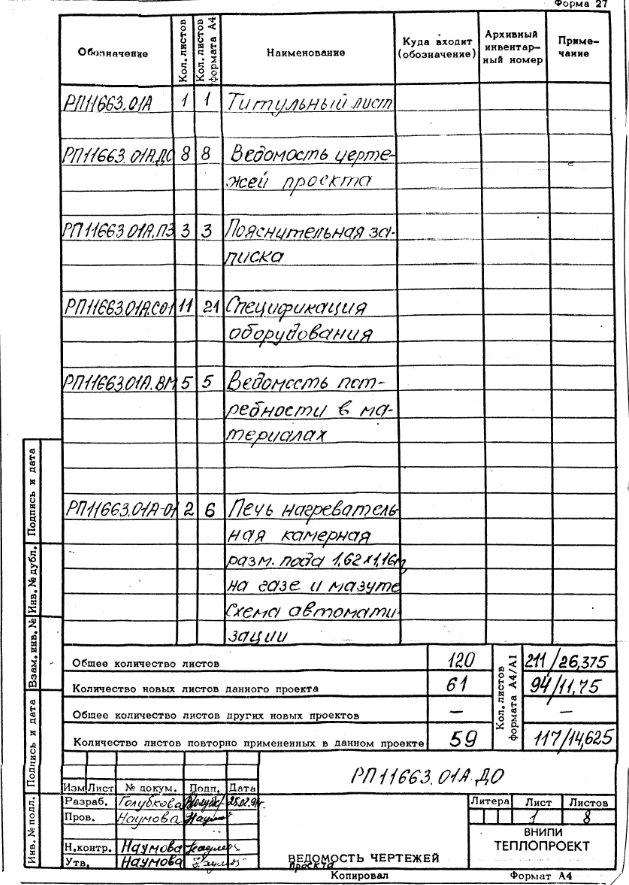 Форма 27
Обозначение Кол. листов Кол. листов формата А4 Наименование Куда входит (обозначение) Архивный инвентар-ный номер Приме-чание
РП11663.01А 1 1 Титульный лист
РП11663.01А.ДО 8 8 Ведомость черте-
жей проекта
РП11663.01А.ПЗ 3 3 Пояснительная за-
писка
РП11663.01А.СО1 11 21 Спецификация
оборудования
РП11663.01А.ВМ 5 5 Ведомость пот-
ребности в ма-
териалах
РП11663.01А-01 2 6 Печь нагреватель-
ная камерная
разм. пода 1,62×1,16м
на газе и мазуте
Схема автомати-
зации
Общее количество листов 120 Кол. листов формата А4/А1 211/26,375
Количество новых листов данного проекта 61 94/11,75
Общее количество листов других новых проектов — —
Количество листов повторно примененных в данном проекте 59 117/14,625
Подпись и дата
Инв. № дубл.
Взам. инв. №
Подпись и дата
Инв. № подл.
РП11663.01А.ДО
Изм Лист № докум. Подп. Дата
Разраб. Голубкова
Пров. Наумова
Н.контр. Наумова
Утв. Наумова
ВЕДОМОСТЬ ЧЕРТЕЖЕЙ
проекта
Литера Лист Листов
1 8
ВНИПИ
ТЕПЛОПРОЕКТ
Копировал Формат А4